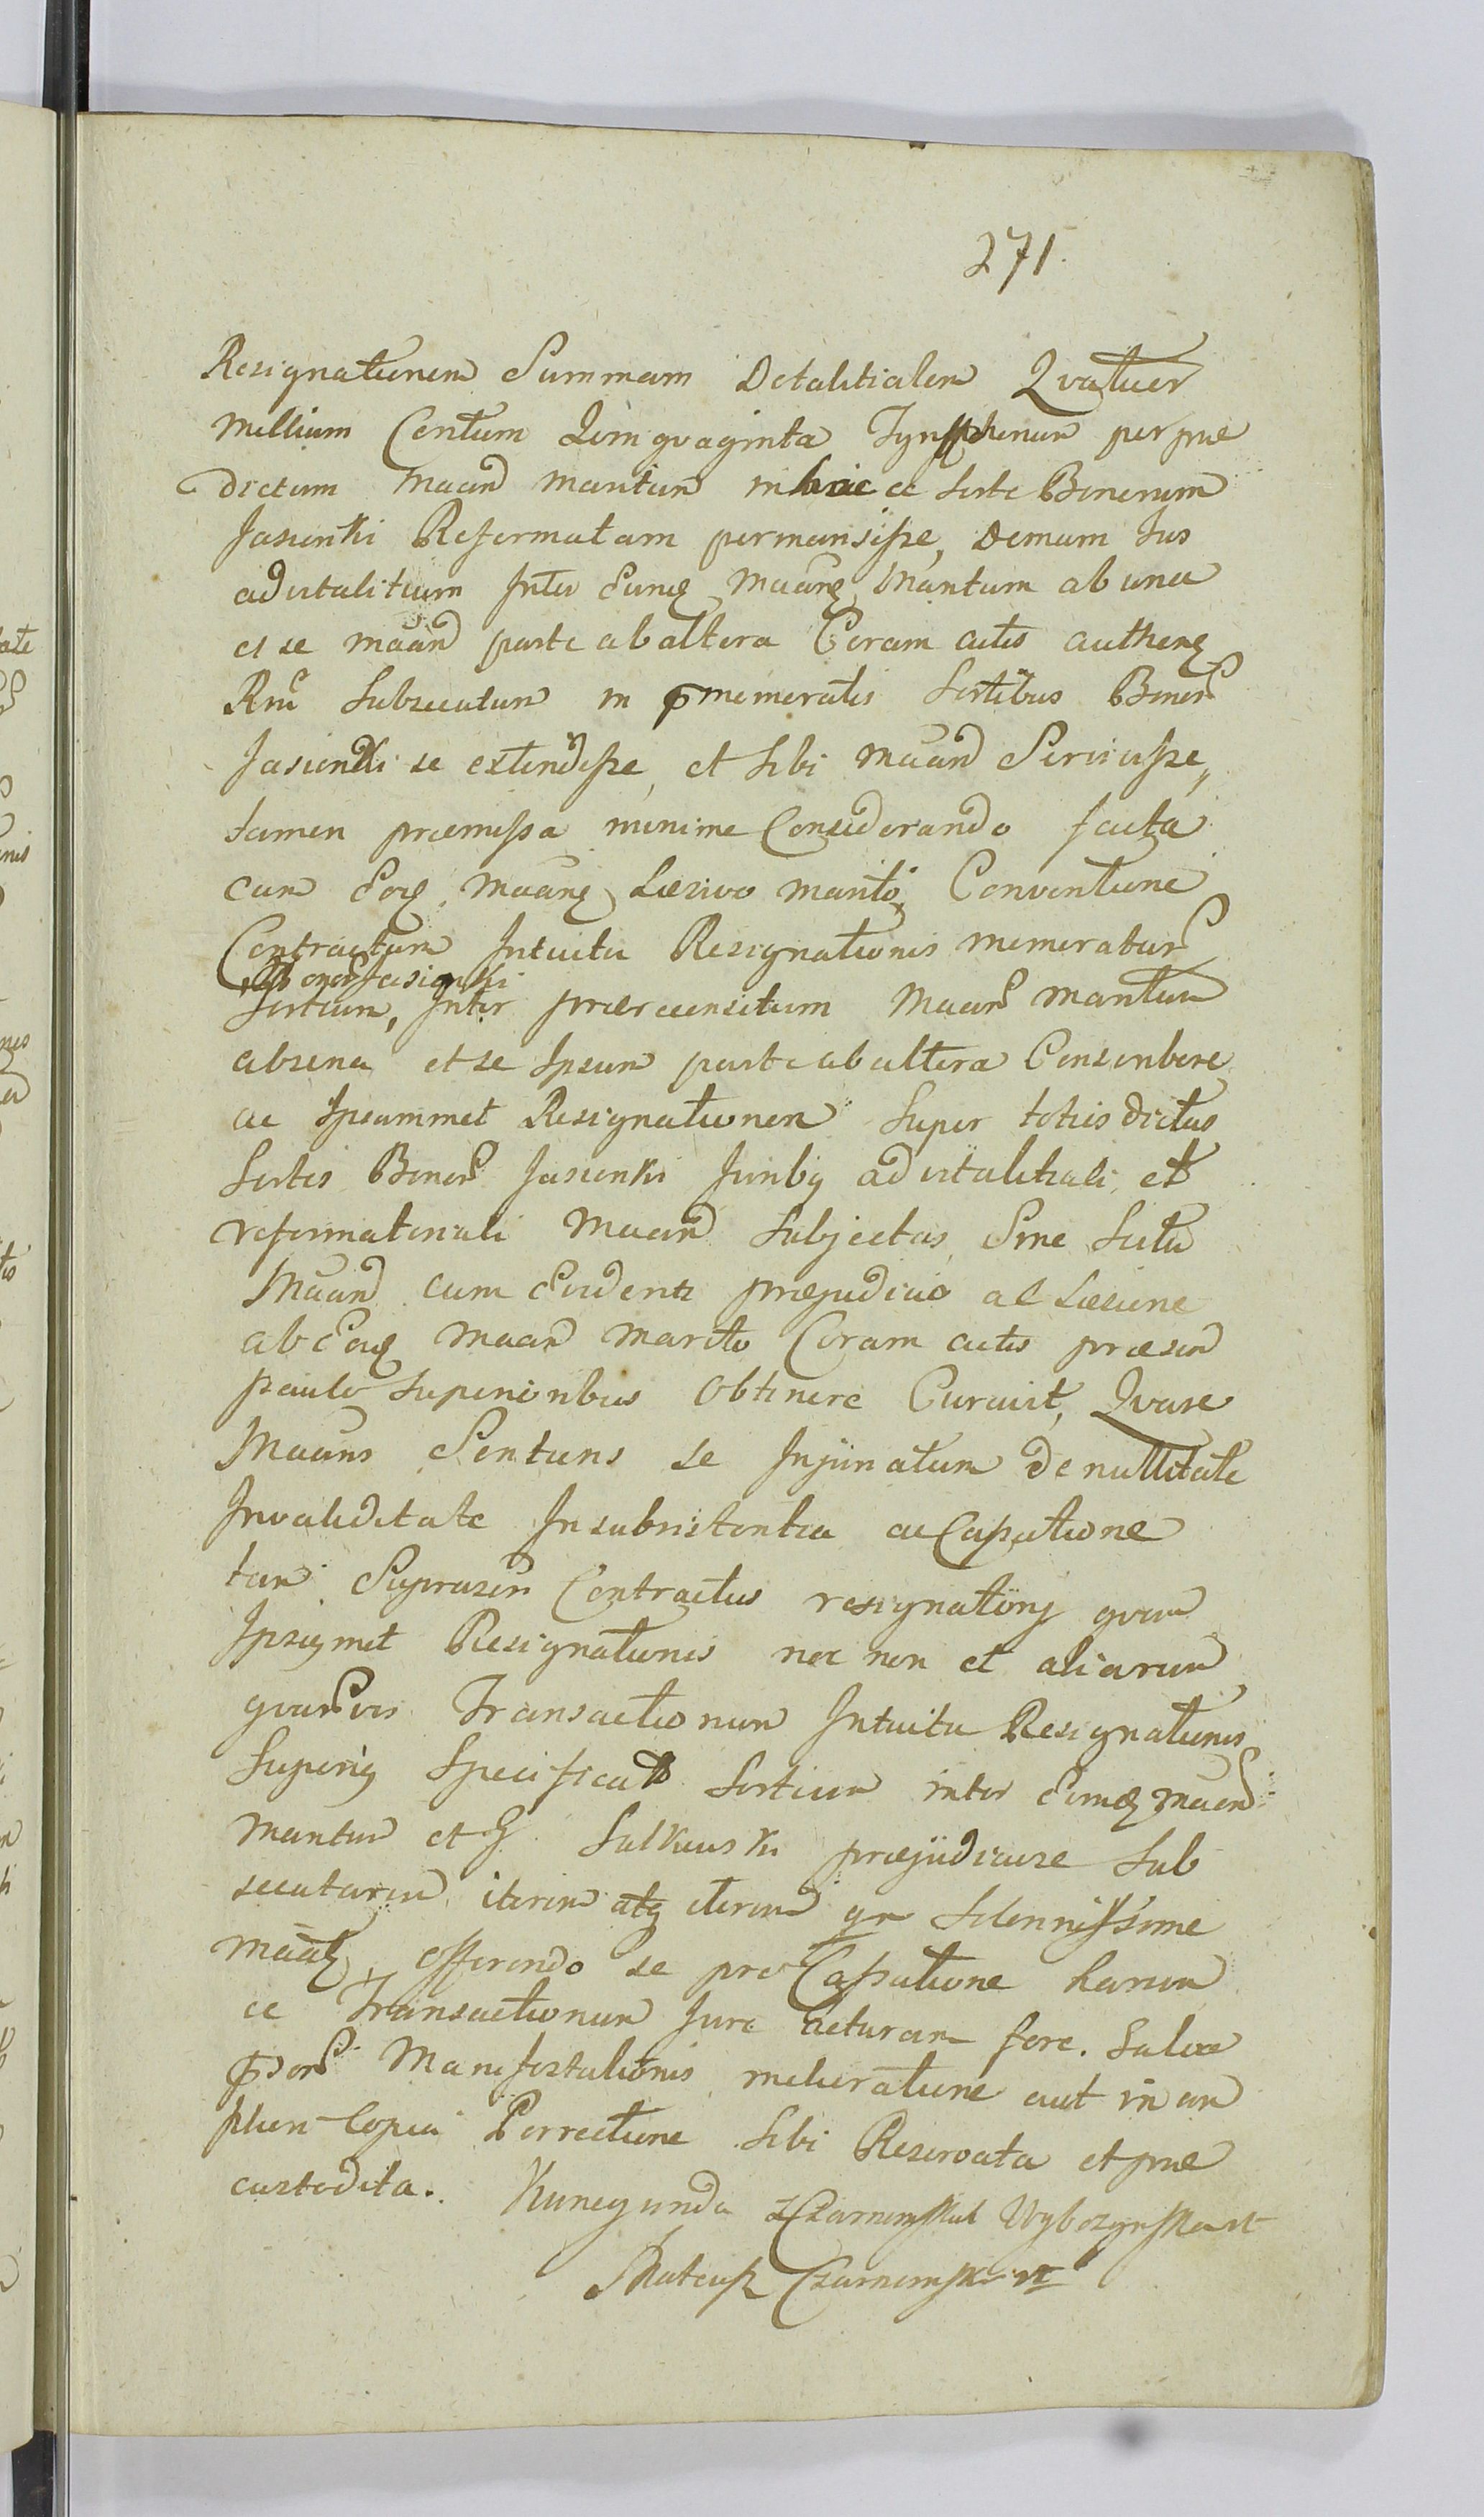 271.
Resignationem Summam Dotalitialem Qvatuor
Millium Centum Qvinqvaginta Tynphonum per præ
dictum Maand maritum in hacce Sorte Bonorum
Jasionki Reformatam permansisse, Demum Jus
advitalitium Inter Eunq Maanq Maritum ab una
et se Maand parte ab altera Coram actis authenq
Subsecutum in pmemoratis Sortibus Bonor
Jasionki se extendisse, et Sibi Maand Serviisse,
tamen præmissa minime Considerando facta
cum Eoq Maanq Læsivo Marito, Conventione
Contractum Intuitu Resignationis memoratar
Bonor Jasionki
Sortium, Inter præreccensitum Maan Maritum
ab una et se Ipsum parte ab altera Conscribere
ac Ipsammet Resignationem Super toties dictas
Sortes Bonor Jasionki Juribg advitalitiali et
reformatoriali Maand Subjectas, Sine Scitu
Maand cum Evidenti præjudicio ac Læsione
ab Eoq Maan Marito Coram actis præsen
paulo Superioribus Obtinere Curavit, Qvare
Maans Sentiens se Injuriatum de nullitate
Invaliditate Insubsistentia ac Cassatione
tam Suprascr Contractus resignatorij qvam
Ipsiusmet Resignationis nec non et aliarum
qvarvis Transactionum Intuitu Resignationis
Superig Specificat Sortium inter Eumq Maan
Maritum et G. Sulkowski præjudiciose Sub
secutarum iterum atq iterum qr Solennissime
Maatq, offerendo se pro Cassatione harum
ce Transactionum Jure acturam fore. Salva
psor Manifestationis melioratione aut in am
pliori Copia Porrectione Sibi Reservata et præ
custodita. Kunegunda z Czarnomskich Wyb
Mateusz Czarnomski